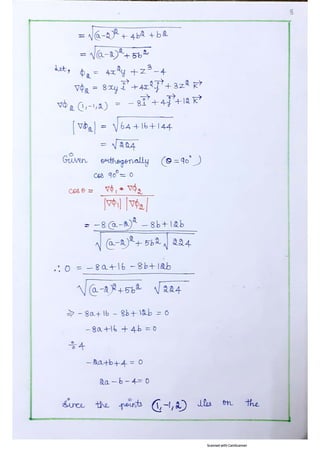 8
= √(a-2)² + 4b² + b²
= √(a-2)² + 5b²
Let, ϕ₂ = 4x²y + z³ - 4
∇ϕ₂ = 8xy i⃗ + 4x² j⃗ + 3z² k⃗
∇ϕ₂ (1,-1,2) = -8i⃗ + 4j⃗ + 12k⃗
|∇ϕ₂| = √64 + 16 + 144
= √224
Given orthogonally (θ = 90°)
cos 90° = 0
cos θ = ∇ϕ₁ • ∇ϕ₂ / |∇ϕ₁| |∇ϕ₂|
= -8(a-2) - 8b + 12b / √(a-2)² + 5b² √224
∴ 0 = -8a + 16 - 8b + 12b / √(a-2)² + 5b² √224
⇒ -8a + 16 - 8b + 12b = 0
-8a + 16 + 4b = 0
÷ 4
-2a + b + 4 = 0
2a - b - 4 = 0
Since the points (1,-1,2) lies on the
Scanned with CamScanner